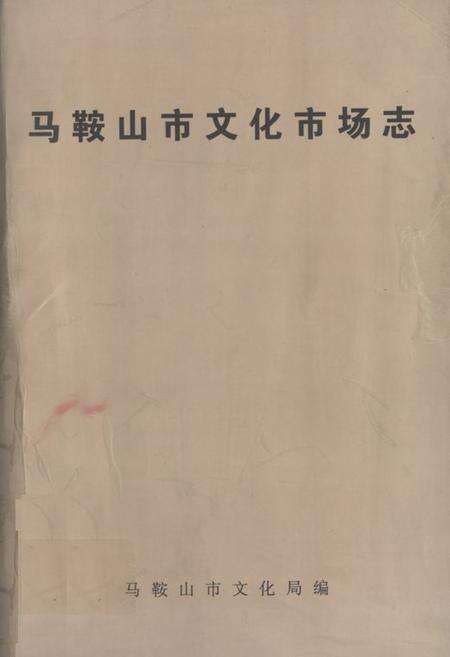 马鞍山市文化市场志
马鞍山市文化局编